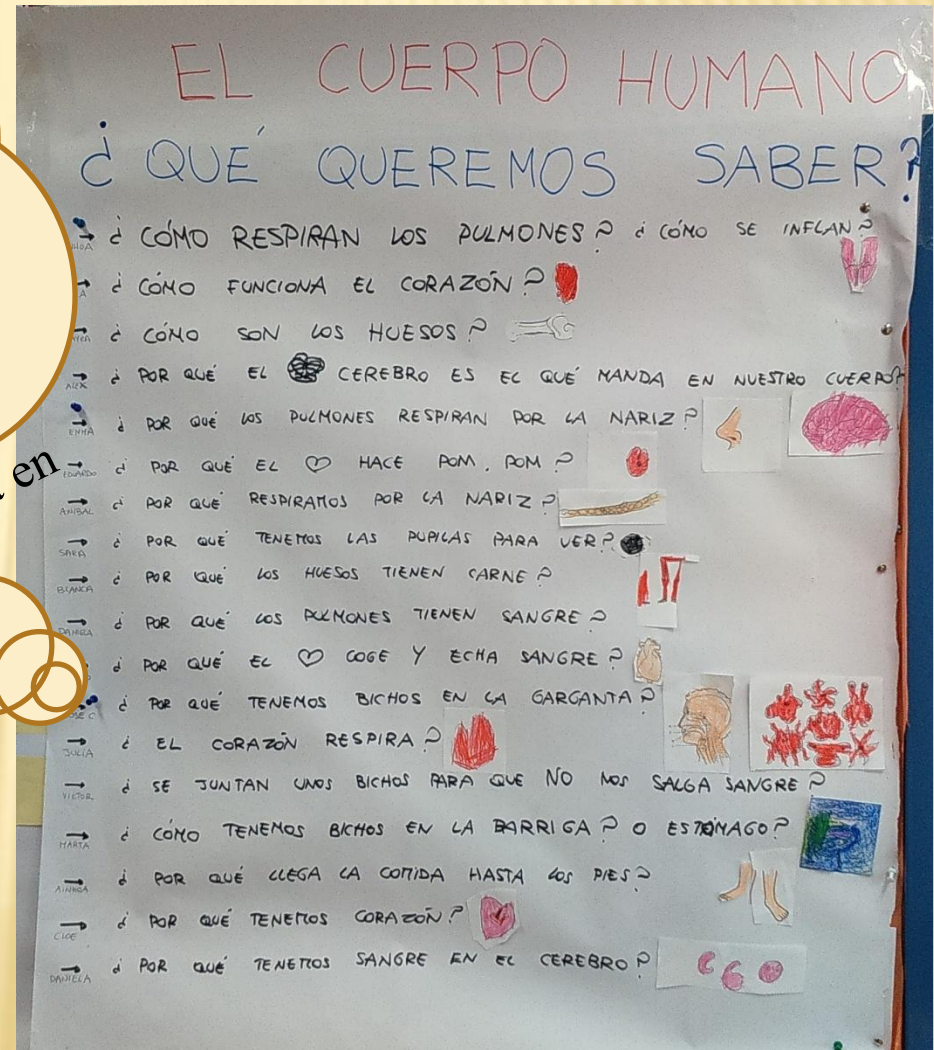 EL CUERPO HUMANO
¿QUÉ QUEREMOS SABER?
→ ¿CÓMO RESPIRAN LOS PULMONES? ¿CÓMO SE INFLAN?
→ ¿CÓMO FUNCIONA EL CORAZÓN?
→ ¿CÓMO SON LOS HUESOS?
ALEX → ¿POR QUÉ EL CEREBRO ES EL QUÉ MANDA EN NUESTRO CUERPO?
→ ¿POR QUÉ LOS PULMONES RESPIRAN POR LA NARIZ?
en
EDUARDO → ¿POR QUÉ EL ♡ HACE POM, POM?
ANIBAL → ¿POR QUÉ RESPIRAMOS POR LA NARIZ?
SARA → ¿POR QUÉ TENEMOS LAS PUPILAS PARA VER?
BLANCA → ¿POR QUÉ LOS HUESOS TIENEN CARNE?
DANIELA → ¿POR QUÉ LOS PULMONES TIENEN SANGRE?
¿POR QUÉ EL ♡ COGE Y ECHA SANGRE?
JOSE C → ¿POR QUÉ TENEMOS BICHOS EN LA GARGANTA?
JULIA → ¿EL CORAZÓN RESPIRA?
VICTOR → ¿SE JUNTAN UNOS BICHOS PARA QUE NO NOS SALGA SANGRE?
MARTA → ¿CÓMO TENEMOS BICHOS EN LA BARRIGA? O ESTÓMAGO?
AINHOA → ¿POR QUÉ LLEGA LA COMIDA HASTA LOS PIES?
CLOE → ¿POR QUÉ TENEMOS CORAZÓN?
DANIELA → ¿POR QUÉ TENEMOS SANGRE EN EL CEREBRO?